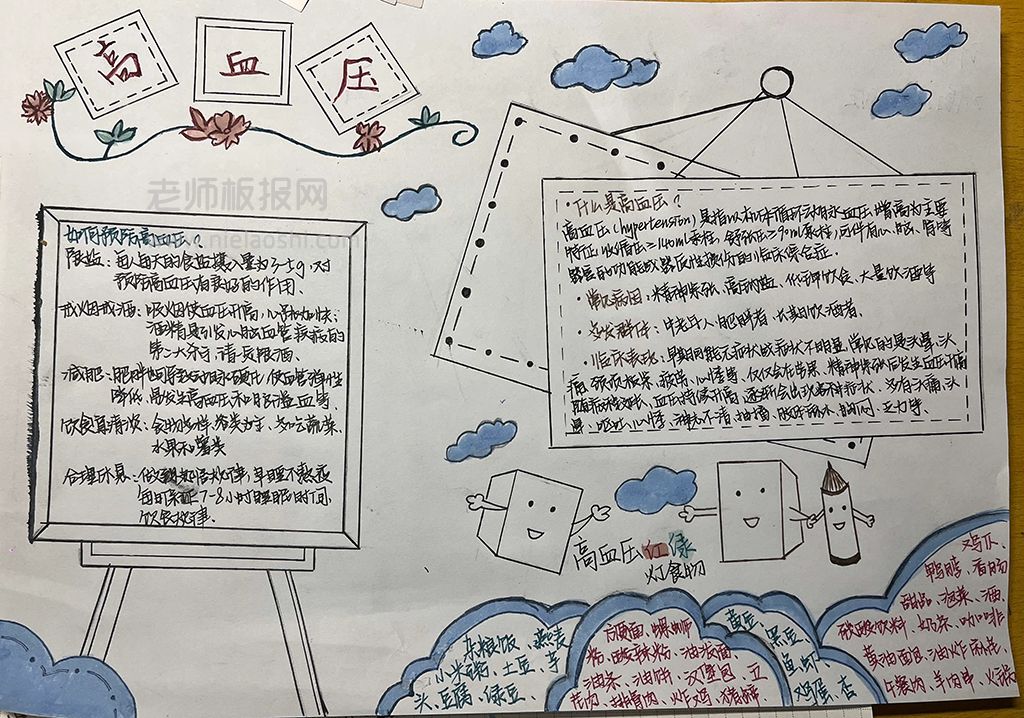 高
血
压
老师板报网
www.nielaoshi.com
如何预防高血压？
限盐：每人每天的食盐摄入量为3-5g，对
预防高血压有良好的作用。
戒烟戒酒：吸烟使血压升高，心跳加快；
酒精是引发心脑血管疾病的
第二大杀手，请贪限酒。
减肥：肥胖也可导致动脉硬化，使血管弹性
降低，易发生高血压和脑溢血等。
饮食宜清淡：食物多样，谷类为主，多吃蔬菜、
水果和薯类
合理休息：做到起居规律，早睡不熬夜
每日保证7-8小时睡眠时间，
饮食规律。
·什么是高血压？
高血压（hypertension）是指以体循环动脉血压增高为主要
特征，收缩压≥140毫米汞柱，舒张压≥90毫米汞柱，可伴有心、脑、肾等
器官的功能或器质性损伤的临床综合症。
·常见病因：精神紧张、高钠盐、低钾饮食、大量饮酒等
·多发群体：中老年人、肥胖者、长期饮酒者。
·临床表现：早期可能无症状或症状不明显，常见的是头晕、头
痛、颈项板紧、疲劳、心悸等，仅仅会在劳累、精神紧张后发生血压升高
随着病程延长，血压持续升高，逐渐会出现各种症状。如有头痛、头
晕、呕吐、心悸、神志不清、抽搐、肢体麻木、胸闷、乏力等。
高血压红绿
灯食物
杂粮饭、燕麦
小米粥、土豆、芋
头、豆腐、绿豆、
方便面、螺蛳
粉、酸辣粉、油泼面、
油条、油饼、汉堡包、五
花肉、排骨肉、炸鸡、猪蹄
黄豆、黑豆、
鱼、虾、
鸡蛋、杏
鸡爪、
鸭脖、香肠
甜品、泡菜、酒、
碳酸饮料、奶茶、咖啡
黄油面包、油炸麻花、
午餐肉、羊肉串、火锅